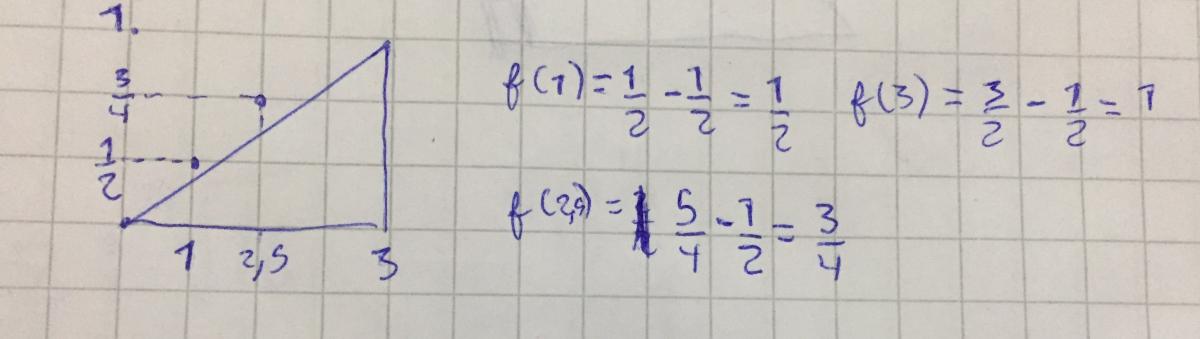 1.
3/4
1/2
1 2,5 3
f(1) = 1/2 - 1/2 = 1/2 f(3) = 3/2 - 1/2 = 1
f(2,5) = 5/4 - 1/2 = 3/4